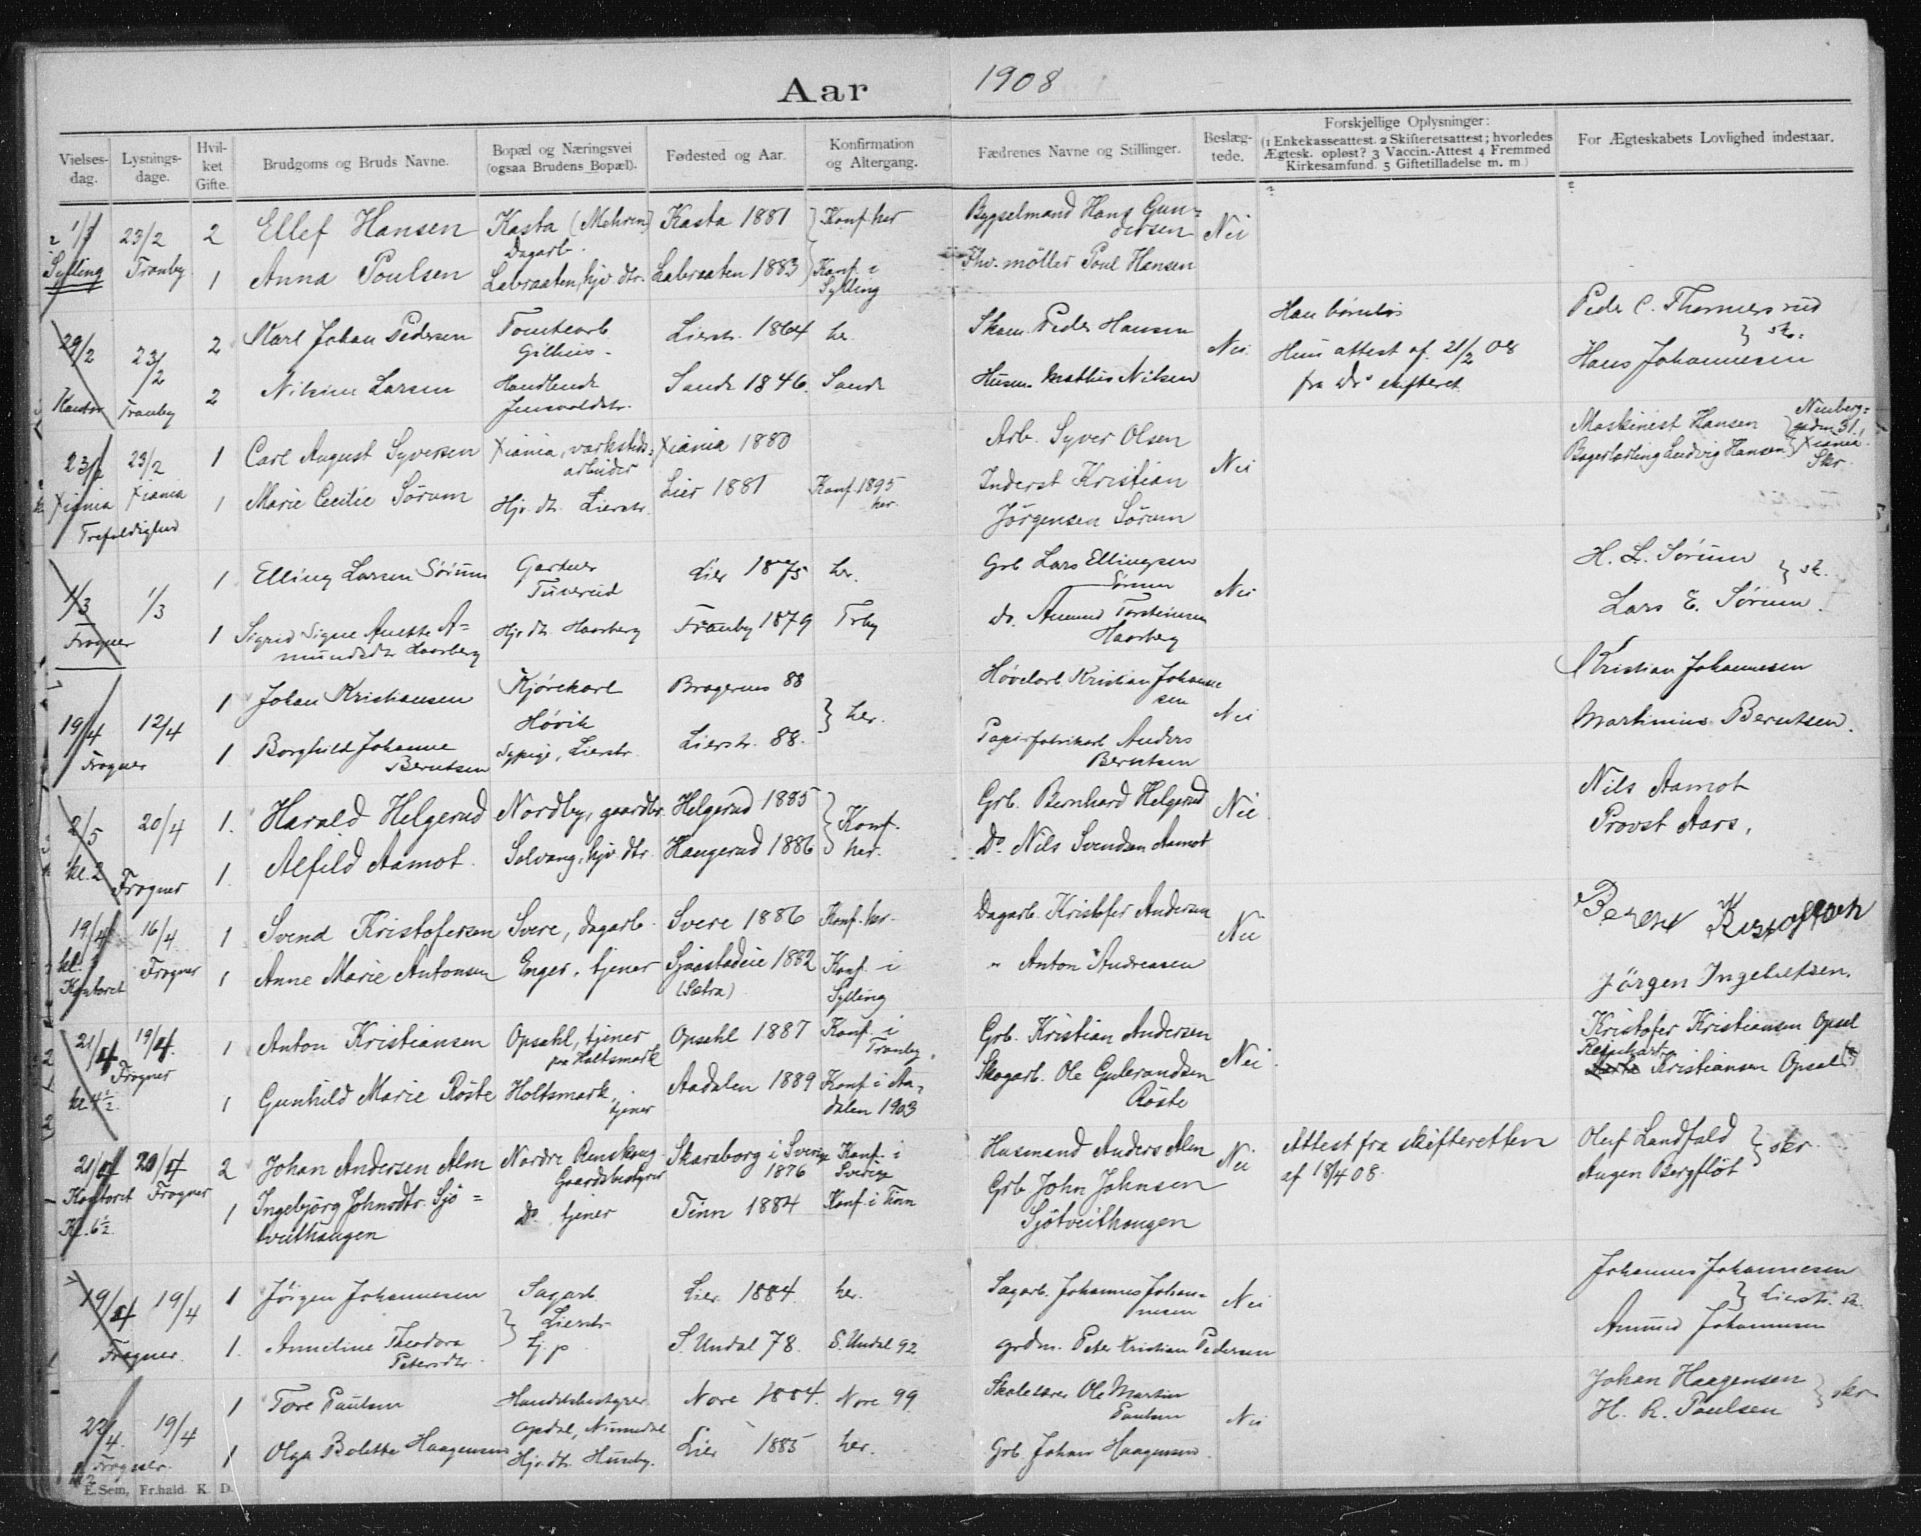 Aar 1908
Vielses-dag. Lysnings-dage. Hvil-ket Gifte. Brudgoms og Bruds Navne. Bopæl og Næringsvei (ogsaa Brudens Bopæl). Fødested og Aar. Konfirmation og Altergang. Fædrenes Navne og Stillinger. Beslæg-tede. Forskjellige Oplysninger: (1 Enkekasseattest. 2 Skifteretsattest; hvorledes Ægtesk. opløst? 3 Vaccin.-Attest 4 Fremmed Kirkesamfund. 5 Giftetilladelse m. m.) For Ægteskabets Lovlighed indestaar.
1/3 23/2 2 Ellef Hansen Kasta (Mehren) Kasta 1881 Konf. her Bygselmand Hans Gun-
Dagarb. dersen Nei
Sylling Tranby 1 Anna Poulsen Labraaten, hjv. dtr. Labraaten 1883 Konf. i Fhv. møller Poul Hansen
Sylling
29/2 23/2 2 Karl Johan Pedersen Tomtearb. Lierstr. 1864 her. Skom. Peder Hansen Nei Han barnløs Peder C. Thornersrud
Gilhus. } sk.
Kontor Tranby 2 Nilsine Larsen Handlende Sande 1846. Sande Husm. Mathis Nilsen Hun attest af 21/2 08 Hans Johannesen
Jensvoldstr. fra Dr skifteret
23/2 23/2 1 Carl August Syversen Xiania, verksteds- Xiania 1880 Arb. Syver Olsen Nei Maskinist Hansen
arbeider Bagerlærling Ludvig Hansen Xiania
Xiania Xiania 1 Marie Cecilie Sørum Hjv. dtr. Lierstr. Lier 1881 Konf. 1895 Inderst Kristian Skr.
Trefoldighed her. Jørgensen Sørum
1/3 1/3 1 Elling Larsen Sørum Gartner Lier 1875 her. Grb. Lars Ellingsen Nei H. L. Sørum
Tuverud Sørum } sk.
Frogner 1 Sigrid Signe Anette A- Hjv. dtr. Haarberg Tranby 1879 Trby do. Amund Torsteinsen Lars E. Sørum.
mundsdtr Haarberg Haarberg
19/4 12/4 1 Johan Kristiansen Kjørekarl Bragernes 88 } her. Høvelarb Kristian Johanne Nei Kristian Johannesen
Høvik sen
Frogner 1 Borghild Johanne Sypige, Lierstr. Lierstr. 88. Papirfabrikarb. Anders Martinius Berntsen.
Berntsen Berntsen
2/5 20/4 1. Harald Helgerud Nordby, gaardbr. Helgerud 1885 } Konf. Grb. Bernhard Helgerud Nei Nils Aamot
kl. 2 Frogner 1. Alfild Aamot. Solvang, hjv. dtr. Haugerud 1886 her. Do. Nils Svendsen Aamot Provst Aars.
19/4 16/4 1 Svend Kristofersen Svere, dagarb. Svere 1886 Konf. her. Dagarb. Kristofer Andersen Nei
Kontoret Frogner 1 Anne Marie Antonsen Enger, tjener Sjaastadeie 1882 Konf. i " Anton Andreasen Jörgen Ingebretsen.
(Sætra) Sylling
21/4 19/4. 1 Anton Kristiansen Opsahl, tjener Opsahl 1887 Konf. i Grb. Kristian Andersen Kristofer Kristiansen Opsal
paa Holtsmark Tranby. Nei
kl 4 1/2. Frogner 1 Gunhild Marie Röste Holtsmark, tjener Aadalen 1889 Konf. i Aa- Skogarb. Ole Gulbrandsen Reinhart Kristiansen Opsal
dalen 1903 Röste
21/4 20/4 2 Johan Andersen Alm Nordre Renskoug Skaraborg i Sverige Konf. i Husmand Anders Alm Nei Attest fra skifteretten Oluf Landfald
Gaardsbestyrer 1876 Sverige af 18/4 08. } skr
Kontoret Frogner 1 Ingebjörg Johnsdtr. Sjö- Do. tjener Tinn 1884 Konf. i Tinn Grb. John Johnsen Augen Bergflöt
Kl. 6 1/2. tveithaugen Sjötveithaugen
19/4 19/4 1 Jörgen Johannesen Sagarb. Lier 1884. her. Sagarb. Johannes Johan- Nei Johannes Johannesen
} Lierstr. nesen } Lierstr. sk.
Frogner 1. Anneline Theodora tj. p. S. Undal 78. S. Undal 92 grdm. Peter Kristian Pedersen Amund Johannesen
Petersdtr.
22/4. 19/4 1 Tore Paulsen Handelsbestyrer Nore 1884. Nore 99 Skolelærer Ole Martin Nei Johan Haagensen
Opdal, Numedal Paulsen } skr
Frogner. 1 Olga Bolette Haagensen Hjv. dtr. Huseby. Lier 1885 her. Grb. Johan Haagensen. H. R. Paulsen
E. Sem, Fr.hald. K. D.